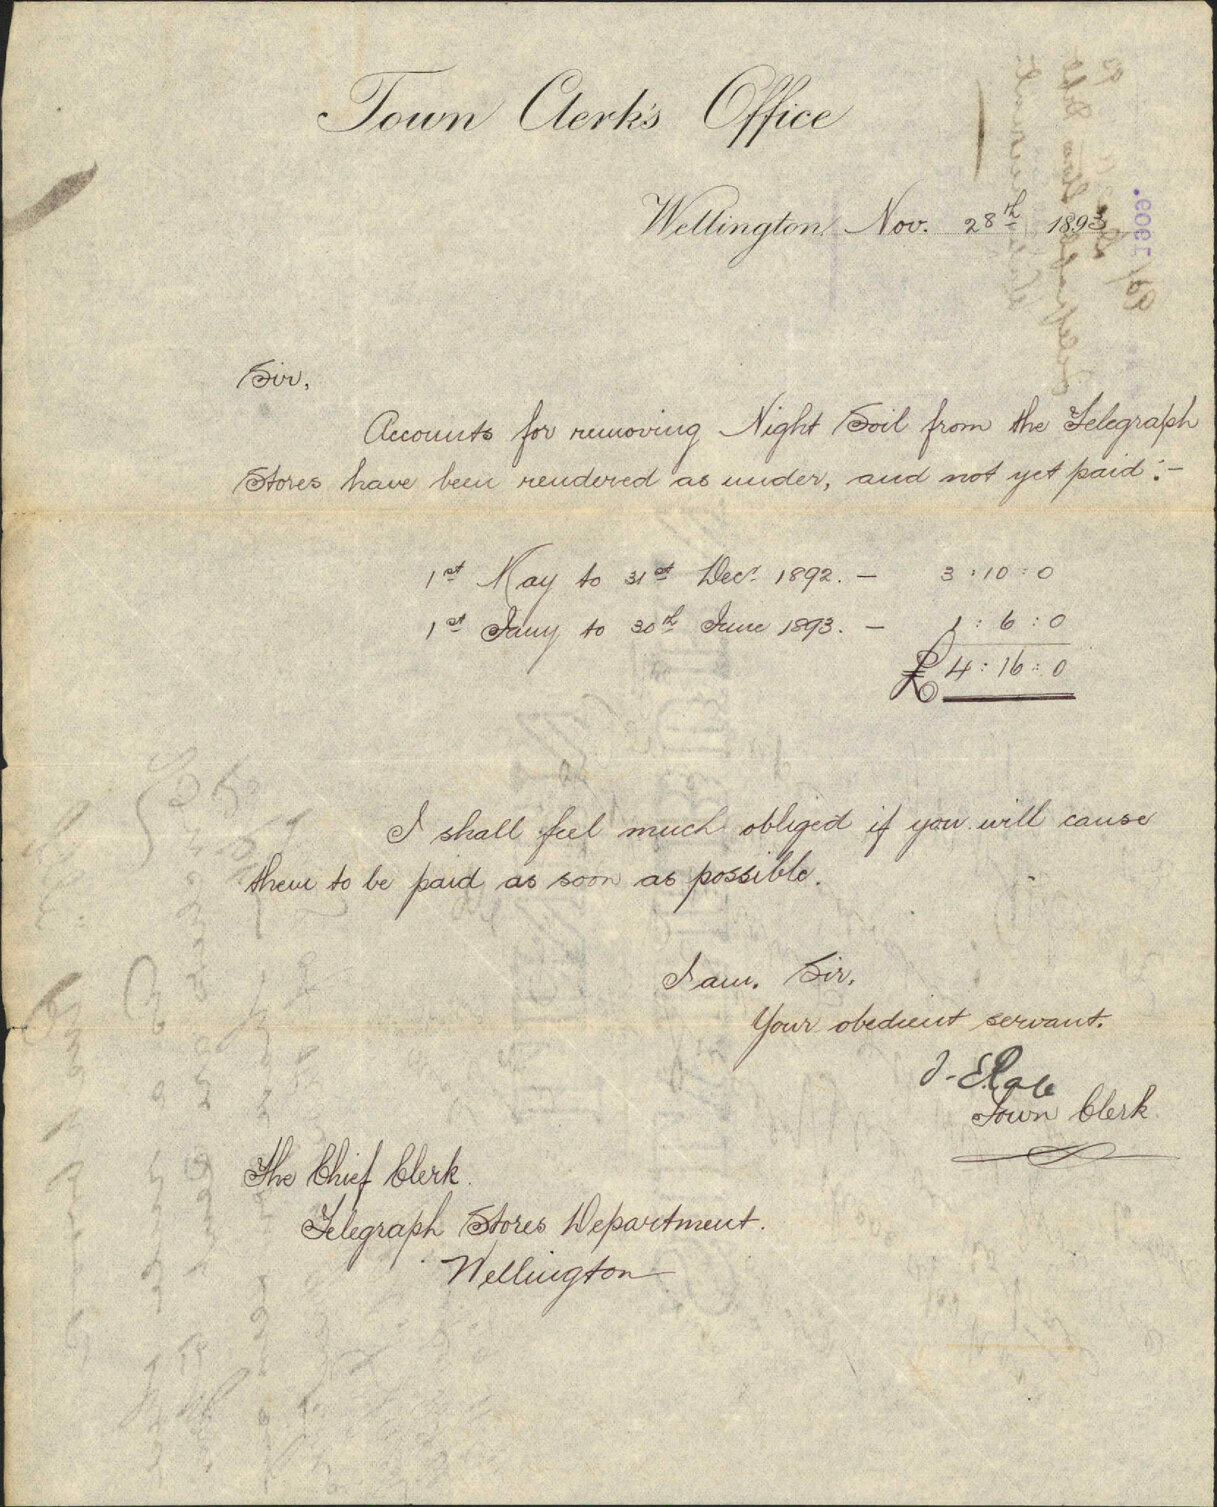 Town Clerk's Office
Wellington Nov. 28th 1893
Sir,
Accounts for removing Night Soil from the Telegraph
Stores have been rendered as under, and not yet paid :-
1st May to 31st Decr. 1892. - 3 : 10 : 0
1st Jany to 30th June 1893. - 1 : 6 : 0
£ 4 : 16 : 0
I shall feel much obliged if you will cause
them to be paid as soon as possible.
I am. Sir,
Your obedient servant.
Town Clerk
The Chief Clerk.
Telegraph Stores Department.
Wellington